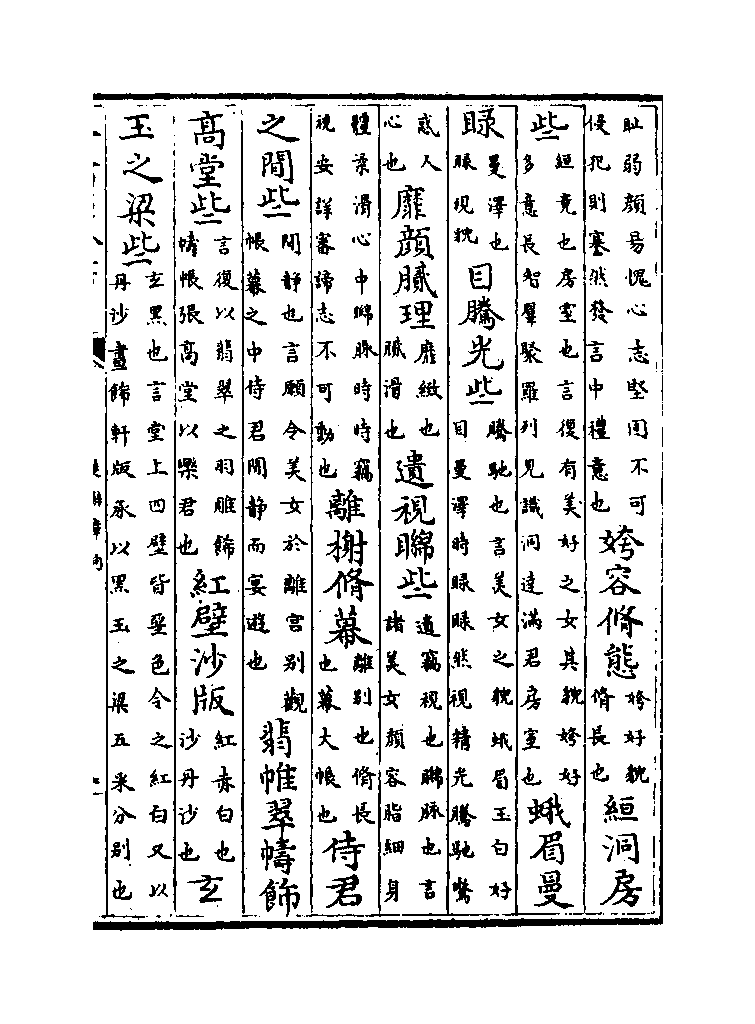 耻弱顔易愧心志堅固不可侵犯則謇然發言中禮意也姱容脩態姱好貌脩長也絙洞房
些絙竟也房室也言復有美好之女其貌姱好多意長智羣聚羅列見識洞達滿君房室也蛾眉曼
睩曼澤也睩視貌目騰光些騰馳也言美女之貌蛾眉玉白好目曼澤時睩睩然視精光騰馳驚
惑人心也靡顔膩理靡緻也膩滑也遺視矊些遺竊視也矊脉也言諸美女顔容脂細身
體柔滑心中矊脉時時竊視安詳審諦志不可動也離榭脩幕離別也脩長也幕大帳也侍君
之閒些閒静也言願令美女於離宮別觀帳幕之中侍君閒静而宴遊也翡帷翠幬飾
高堂些言復以翡翠之羽雕飾幬帳張高堂以樂君也紅壁沙版紅赤白也沙丹沙也玄
玉之梁些玄黑也言堂上四壁皆堊色令之紅白又以丹沙畫飾軒版承以黑玉之梁五采分別也